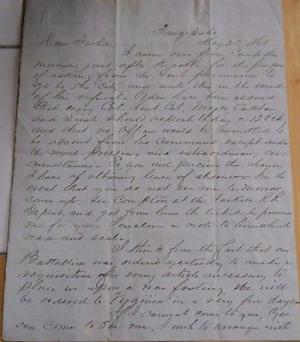 Tangipaho
Dear Father May 21
I came over from Compton
morning just after
of asking from the Govt permission to
go to the City, and while this in the event
of the orders have been issued
that every Col Lieut Col, Major Captain
and Lieut should report today
and that no Officer would be permitted to
be absent from his Command except under
the most pressing and extraordinary
circumstances. So you will perceive the chance
I have of obtaining leave of absence. In the
event that you do not see me to morrow
come up. See Compton at the Jackson RR
Depot and get from him the ticket he promised
me for you. I enclose a note to him which
read and seal.
I think from the fact that our
Battalion was ordered yesterday to make a
requisition for every article necessary to
place us upon a war footing we will
be ordered to Virginia in a very few days
If I cannot come to you, you
can come to see me, I wish to arrange with